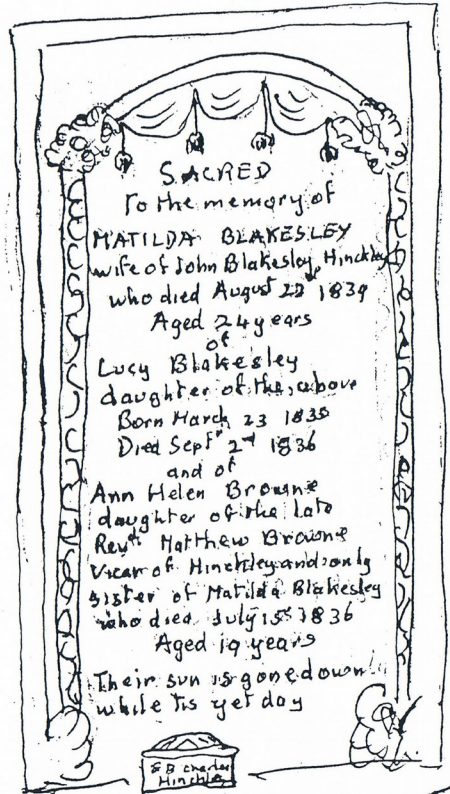 SACRED
To the memory of
MATILDA BLAKESLEY
wife of John Blakesley, Hinckley
who died August 22d 1839
Aged 24 years
of
Lucy Blakesley
daughter of the above
Born March 23 1835
Died Septr 2nd 1836
and of
Ann Helen Browne
daughter of the late
Revd Matthew Browne
Vicar of Hinckley and only
Sister of Matilda Blakesley
who died July 15th 1836
Aged 19 years
Their sun is gone down
while tis yet day
Charles
Hinckley